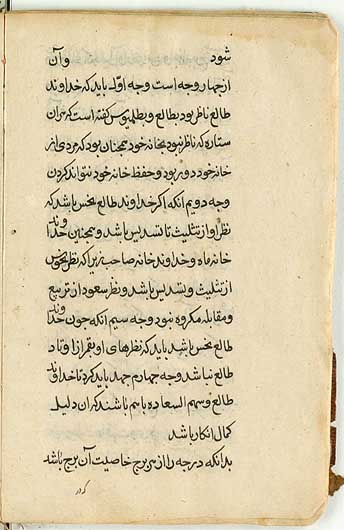 شود وآن
ازجهار وجه است وجه اوّل بايد كه خداوند
طالع ناظر بود بطالع و بطلميوس كفته است كه هران
ستاره كه ناظر نبود بخانه خود همجنان بود كه مردى از
خانه خود دور بود و حفظ خانه خود نتواند كردن
وجه دويم انكه اكر خداوند طالع نحس باشد كه
نظر او از تثليث تا تسديس باشد و همجنين خداوند
خانه ماه و خداوند خانه صاحب زيرا كه نظر نحوس
از تثليث و تسديس باشد و نظر سعود از تربيع
و مقابله مكروه نبود وجه سيم انكه جون خداوند
طالع نحس باشد بايد كه نظرهاى او بقمر از اوتاد
طالع نباشد وجه جهارم جهد بايد كرد تا خداوند
طالع و سهم السعاده باسم باشند كه ان دليل
كمال انكار باشد
بدانكه درجه را از هر برج خاصيت آن برج باشد